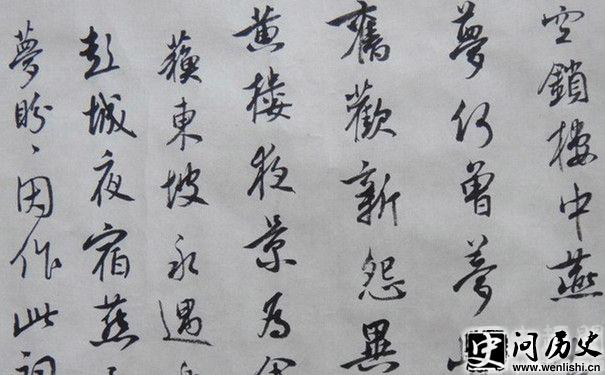 空鎖樓中燕
夢何曾夢
舊歡新怨異
黄樓夜景為
蘇東坡永遇
彭城夜宿燕
夢盼、因作此詞
史问历史
www.wenlishi.cn